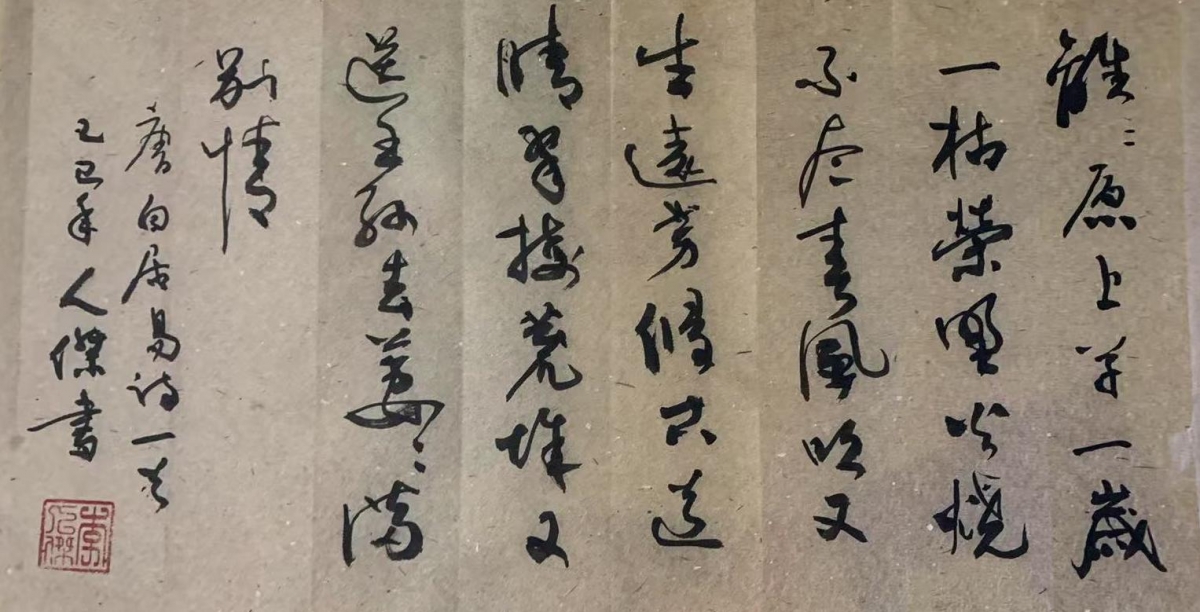 離〻原上草一歲
一枯榮野火燒
不盡春風吹又
生遠芳侵古道
晴翠接荒城又
送王孫去萋〻滿
別情
唐白居易詩一首
乙巳年人傑書